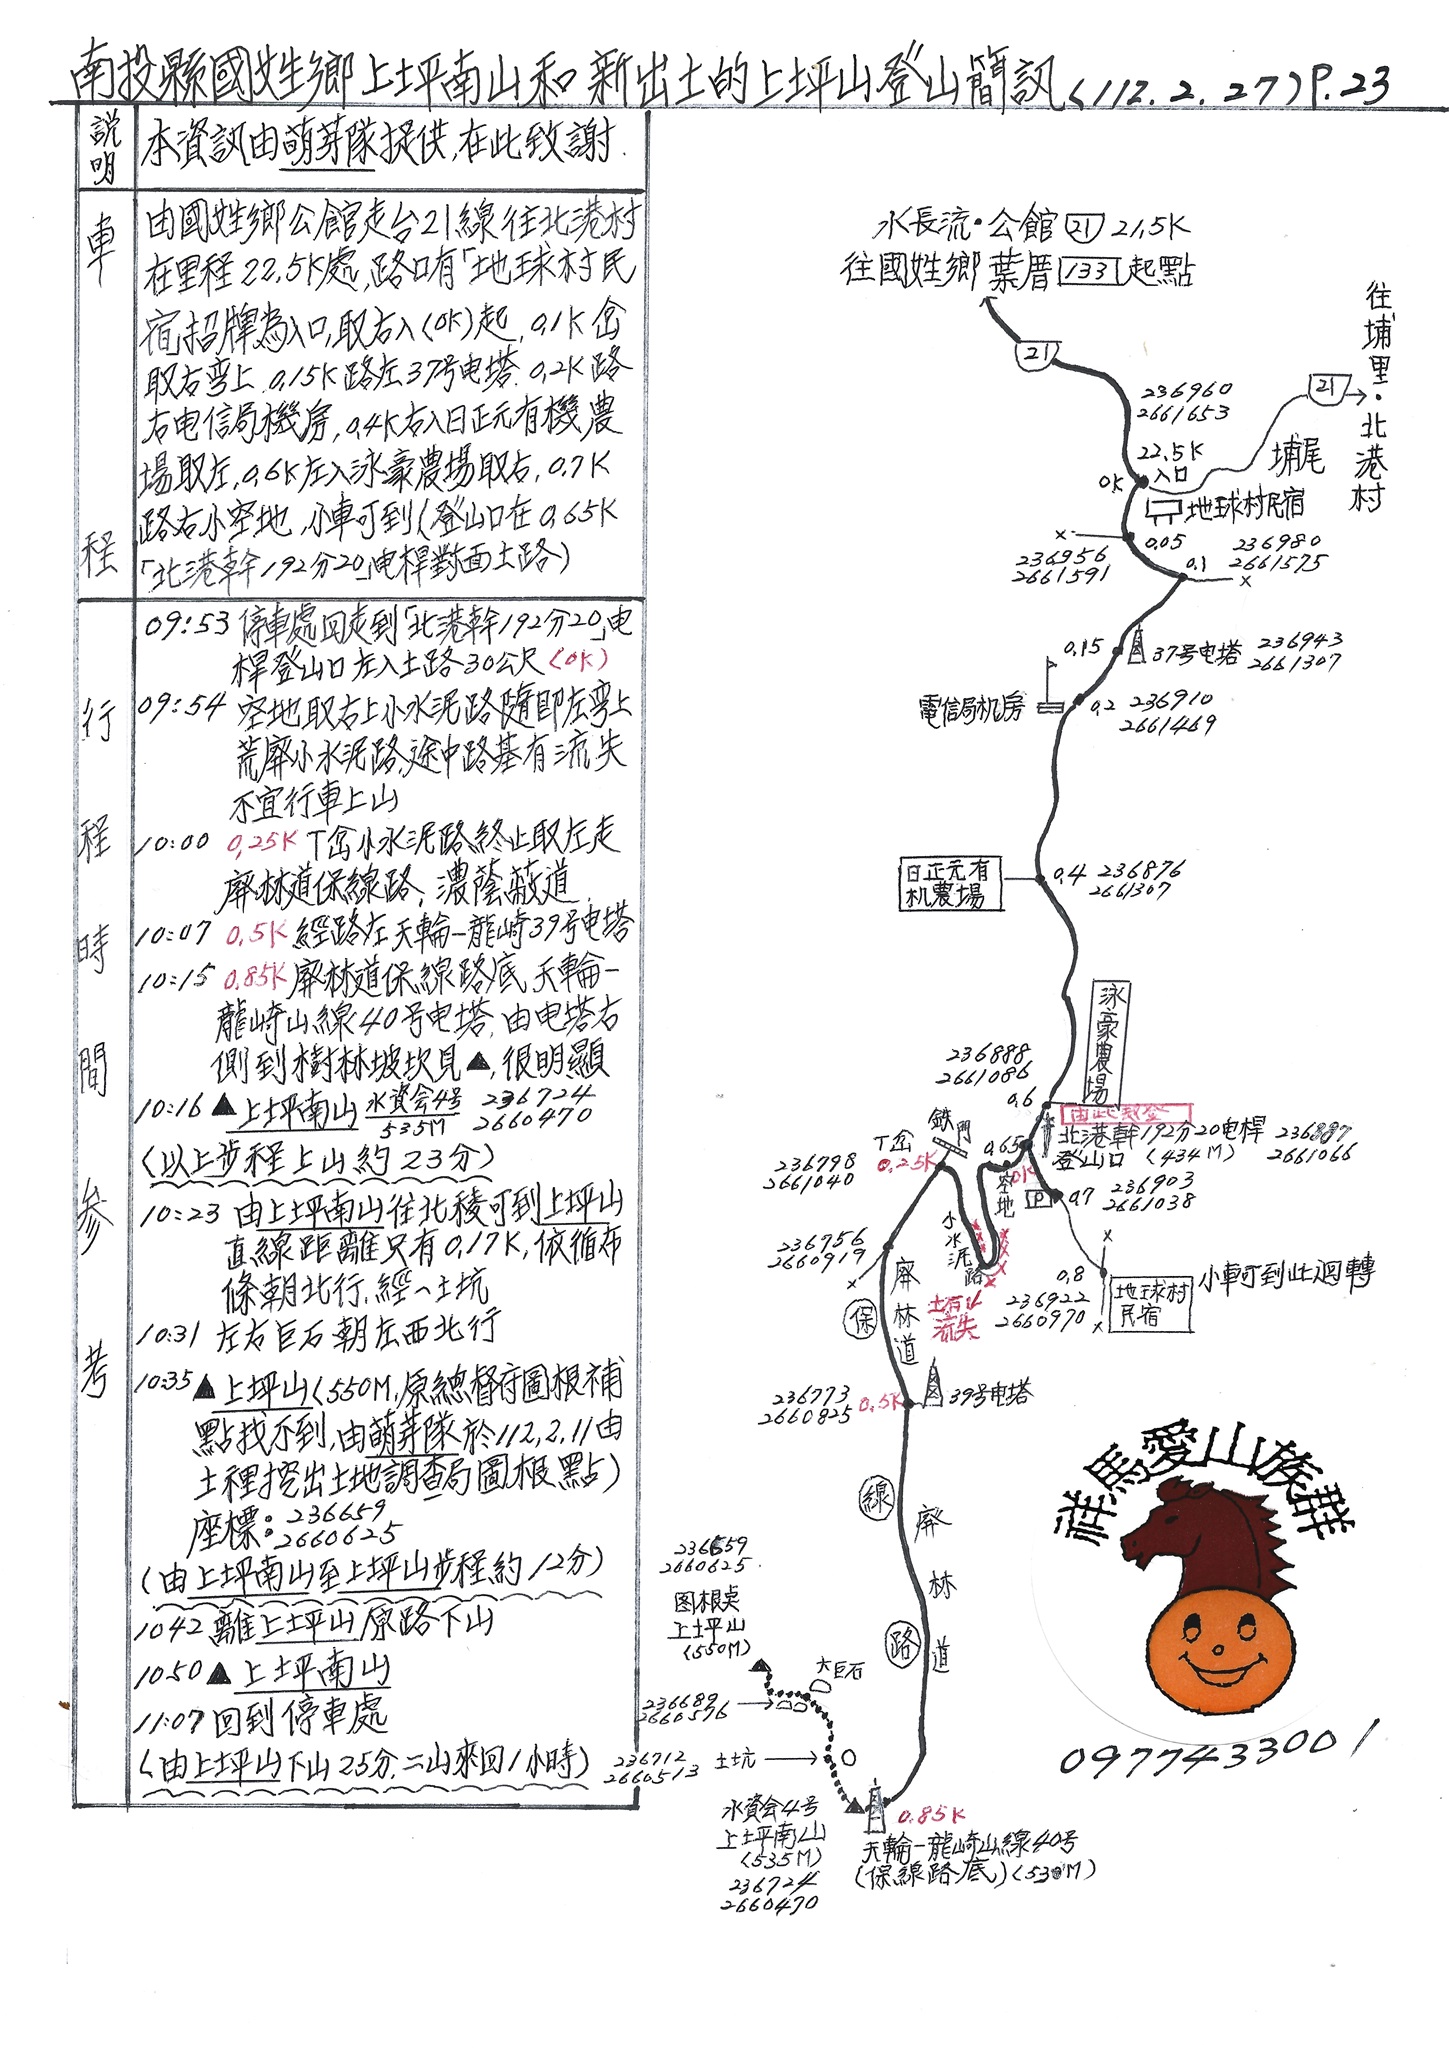 南投縣國姓鄉上坪南山和新出土的上坪山登山簡訊(112.2.27)P.23
說明
本資訊由萌芽隊提供,在此致謝.
車程
由國姓鄉公館走台21線往北港村
在里程22.5K處,路口有「地球村民
宿招牌為入口,取右入(0K)起,0.1K岔
取右彎上.0.15K路左37号电塔.0.2K路
右电信局機房,0.4K右入日正元有機農
場取左,0.6K左入泳豪農場取右,0.7K
路右小空地,小車可到(登山口在0.65K
「北港幹192分20」电桿對面土路)
行程時間參考
09:53 停車處回走到「北港幹192分20」电
桿登山口左入土路30公尺(0K)
09:54 空地取右上小水泥路隨即左彎上
荒廢小水泥路,途中路基有流失
不宜行車上山
10:00 0.25K T岔小水泥路終止取左走
廢林道保線路,濃蔭蔽道.
10:07 0.5K 經路左天輪一龍崎39号电塔
10:15 0.85K 廢林道保線路底,天輪一
龍崎山線40号电塔,由电塔右
側到樹林坡坎見▲,很明顯
10:16 ▲上坪南山 水資会4号 535M 236724 2660470
(以上步程上山約23分)
10:23 由上坪南山往北稜可到上坪山
直線距離只有0.17K,依循布
條朝北行,經一土坑
10:31 左右巨石朝左西北行
10:35 ▲上坪山(550M,原總督府圖根補
點找不到,由萌芽隊於112.2.11由
土裡挖出土地調查局圖根點)
座標:236659
2660625
(由上坪南山至上坪山步程約12分)
1042 離上坪山原路下山
1050 ▲上坪南山
11:07 回到停車處
(由上坪山下山25分,二山來回1小時)
水長流·公館 21 21.5K
往國姓鄉 葉厝 133 起點
往埔里·北港村
21
21
236960
2661653
22.5K
入口
0K
埔尾
地球村民宿
x
0.05
236956
2661591
0.1
236980
2661575
x
0.15
37号电塔
236943
2661307
電信局机房
0.2
236910
2661469
日正元有
机農場
0.4
236876
2661307
泳豪農場
236888
2661086
0.6
鉄門
T岔
0.25K
236798
2661040
0.65
0K
空地
北港幹192分20电桿
登山口 (434M)
236887
2661066
P
0.7
236903
2661038
小水泥路
x
0.8
236922
2660970
地球村
民宿
x
小車可到此迴轉
流失
236756
2660919
x
廢林道
保
236773
2660825
0.5K
39号电塔
線
廢林道
路
236659
2660625
图根桌
上坪山
(550M)
大巨石
236689
2660576
236712
2660513
土坑
水資会4号
上坪南山
(535M)
236724
2660470
0.85K
天輪一龍崎山線40号
(保線路底)(530M)
祥馬愛山族群
0977433001